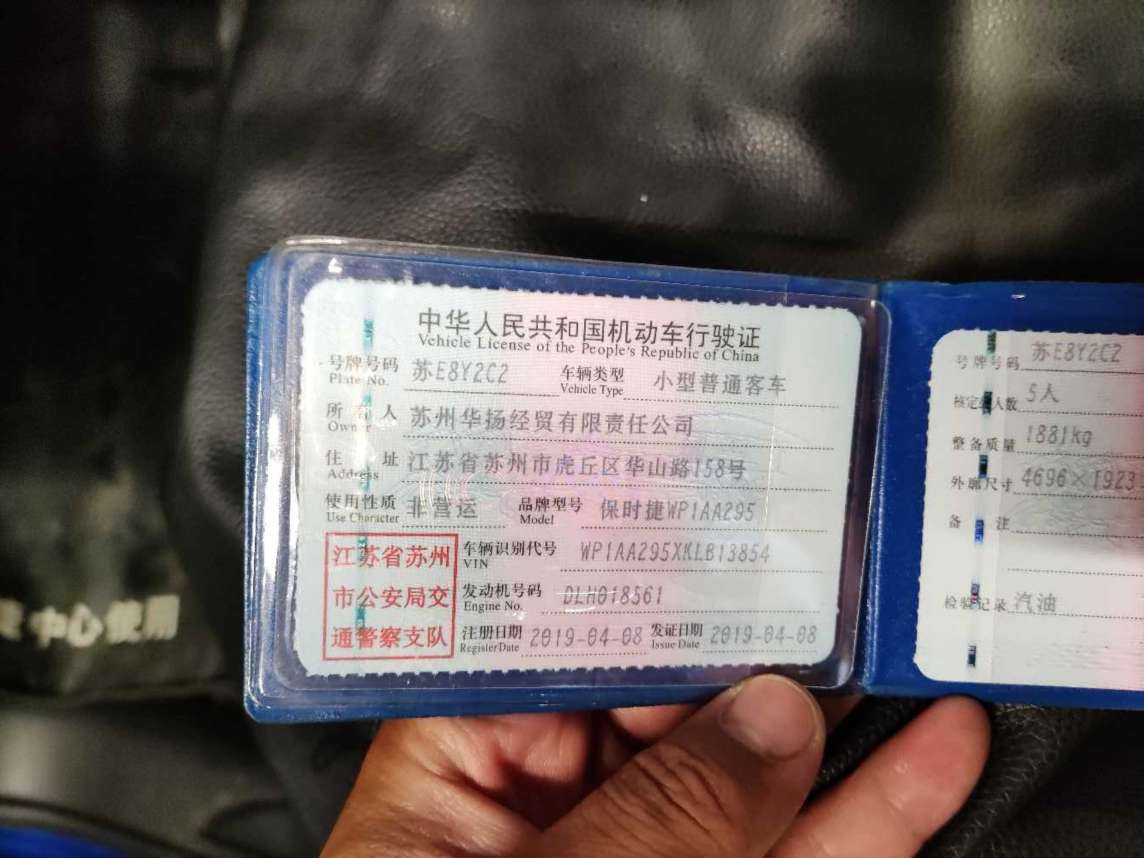 中华人民共和国机动车行驶证
Vehicle License of the People's Republic of China
号牌号码 苏E8Y2C2 车辆类型 小型普通客车
Plate No. Vehicle Type
所有人 苏州华扬经贸有限责任公司
Owner
住址 江苏省苏州市虎丘区华山路158号
Address
使用性质 非营运 品牌型号 保时捷WP1AA295
Use Character Model
江苏省苏州
市公安局交
通警察支队
车辆识别代号 WP1AA295XKLB13854
VIN
发动机号码 DLH018561
Engine No.
注册日期 2019-04-08 发证日期 2019-04-08
Register Date Issue Date
号牌号码 苏E8Y2C2
核定 人数 5人
整备质量 1881kg
外廓尺寸 4696×1923
备注
检验记录 汽油
中心使用